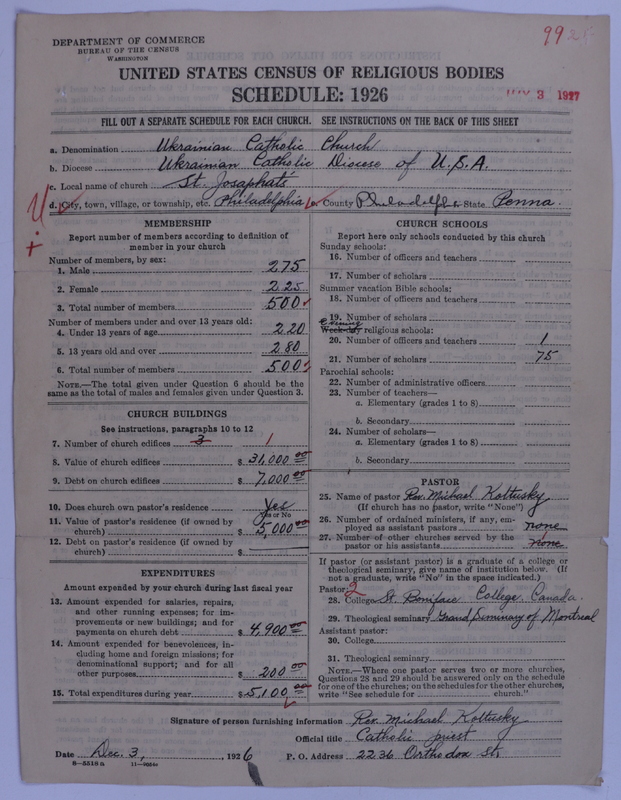 DEPARTMENT OF COMMERCE
BUREAU OF THE CENSUS
WASHINGTON
99 25
UNITED STATES CENSUS OF RELIGIOUS BODIES
SCHEDULE: 1926
3 1927
FILL OUT A SEPARATE SCHEDULE FOR EACH CHURCH. SEE INSTRUCTIONS ON THE BACK OF THIS SHEET
a. Denomination Ukrainian Catholic Church
b. Diocese Ukrainian Catholic Diocese of U.S.A.
c. Local name of church St. Josaphat's
d. City, town, village, or township, etc. Philadelphia County Philadelphia State Penna.
MEMBERSHIP
Report number of members according to definition of
member in your church
Number of members, by sex:
1. Male 275
2. Female 225
3. Total number of members 500
Number of members under and over 13 years old:
4. Under 13 years of age 220
5. 13 years old and over 280
6. Total number of members 500
NOTE.—The total given under Question 6 should be the
same as the total of males and females given under Question 3.
CHURCH BUILDINGS
See instructions, paragraphs 10 to 12
7. Number of church edifices 3 1
8. Value of church edifices $ 31,000 00
9. Debt on church edifices $ 7,000 00
10. Does church own pastor's residence Yes
Yes or No
11. Value of pastor's residence (if owned by
church) $ 5,000 00
12. Debt on pastor's residence (if owned by
church) $
EXPENDITURES
Amount expended by your church during last fiscal year
13. Amount expended for salaries, repairs,
and other running expenses; for im-
provements or new buildings; and for
payments on church debt $ 4,900 00
14. Amount expended for benevolences, in-
cluding home and foreign missions; for
denominational support; and for all
other purposes $ 200 00
15. Total expenditures during year $ 5,100 00
CHURCH SCHOOLS
Report here only schools conducted by this church
Sunday schools:
16. Number of officers and teachers
17. Number of scholars
Summer vacation Bible schools:
18. Number of officers and teachers
19. Number of scholars
Evening
Week-day religious schools:
20. Number of officers and teachers 1
21. Number of scholars 75
Parochial schools:
22. Number of administrative officers
23. Number of teachers—
a. Elementary (grades 1 to 8)
b. Secondary
24. Number of scholars—
a. Elementary (grades 1 to 8)
b. Secondary
PASTOR
25. Name of pastor Rev. Michael Koltusky
(If church has no pastor, write "None")
26. Number of ordained ministers, if any, em-
ployed as assistant pastors none
27. Number of other churches served by the
pastor or his assistants none
If pastor (or assistant pastor) is a graduate of a college or
theological seminary, give name of institution below. (If
not a graduate, write "No" in the space indicated.)
Pastor: 2
28. College St. Boniface College, Canada.
29. Theological seminary Grand Seminary of Montreal
Assistant pastor:
30. College
31. Theological seminary
NOTE.—Where one pastor serves two or more churches,
Questions 28 and 29 should be answered only on the schedule
for one of the churches; on the schedules for the other churches,
write "See schedule for church."
Signature of person furnishing information Rev. Michael Koltusky
Official title Catholic priest
Date Dec. 3, 1926 P. O. Address 2236 Orthodox St.
8—5518a